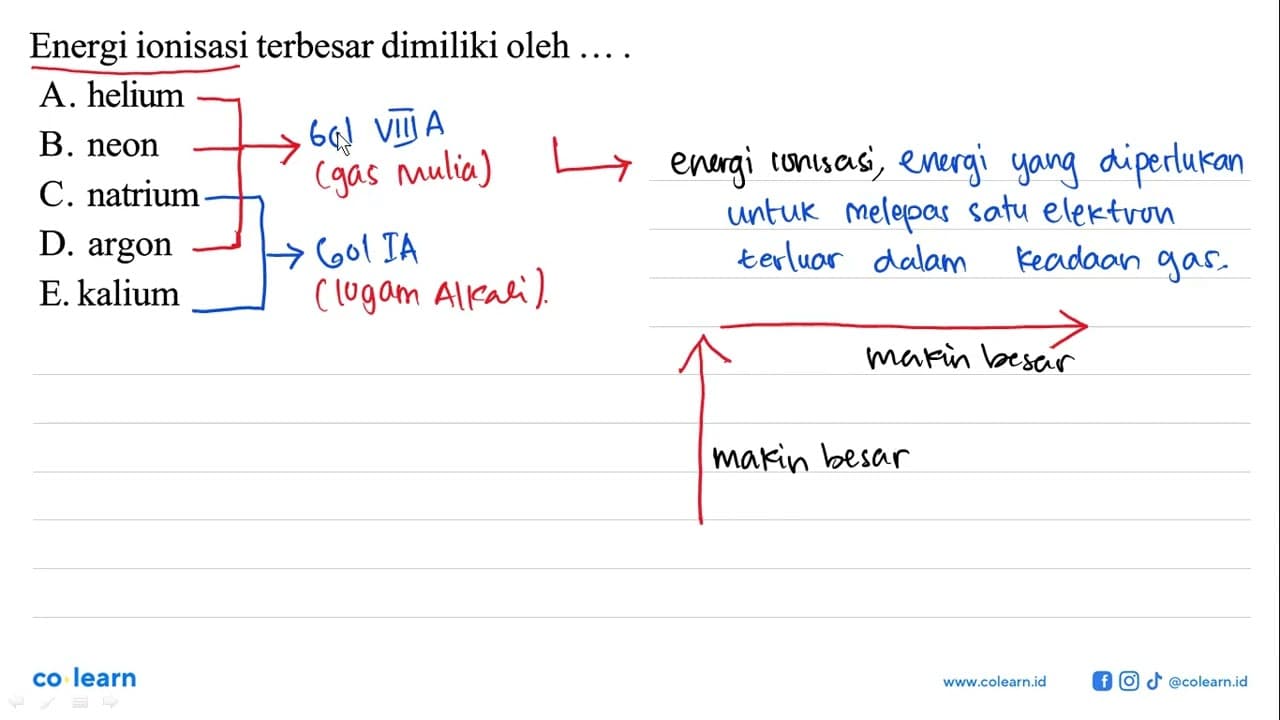 Energi ionisasi terbesar dimiliki oleh ... .
A. helium
B. neon
C. natrium
D. argon
E. kalium
Gol VIII A
(gas mulia)
Gol IA
(logam Alkali).
energi ionisasi, energi yang diperlukan
untuk melepas satu elektron
terluar dalam keadaan gas.
makin besar
makin besar
co learn
www.colearn.id
@colearn.id